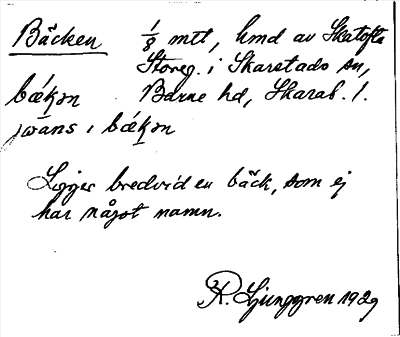 Bäcken 1/8 mtt, hmd av Skatofta
Storeg. i Skarstads sn,
bǽkən Barne hd, Skarab. l.
jwans i bǽkən
Ligger bredvid en bäck, som ej
har något namn.
R. Ljunggren 1929